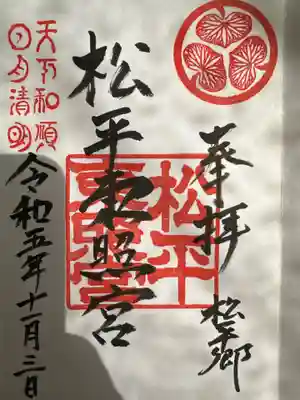 奉拝
松平郷
松平東照宮
松平東照宮
天下和順
日月清明
令和五年十一月三日